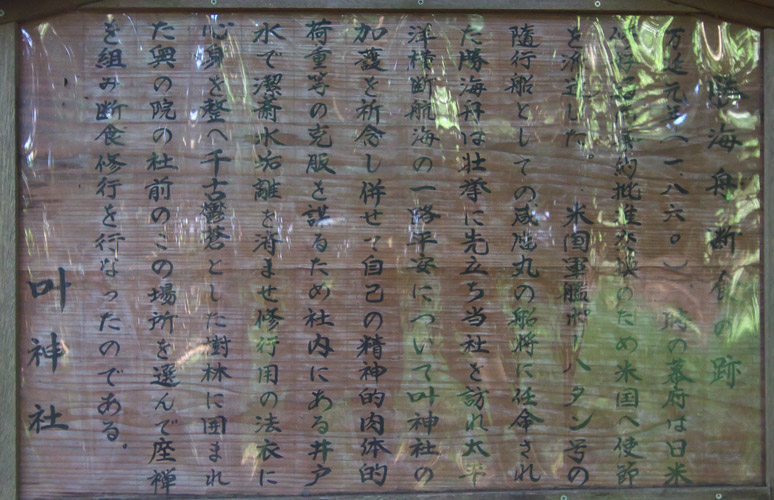 勝海舟断食の跡
万延元年(一八六〇) の幕府は日米
条約批准交換のため米国へ使節
を派遣した。 米国軍艦ポーハタン号の
随行船としての咸臨丸の船将に任命され
た勝海舟は壮挙に先立ち当社を訪れ太平
洋横断航海の一路平安について叶神社の
加護を祈念し併せて自己の精神的肉体的
荷重等の克服を謀るため社内にある井戸
水で潔斎水垢離を済ませ修行用の法衣に
心身を整へ千古鬱蒼とした樹林に囲まれ
た奥の院の社前のこの場所を選んで座禅
を組み断食修行を行なったのである。
叶神社